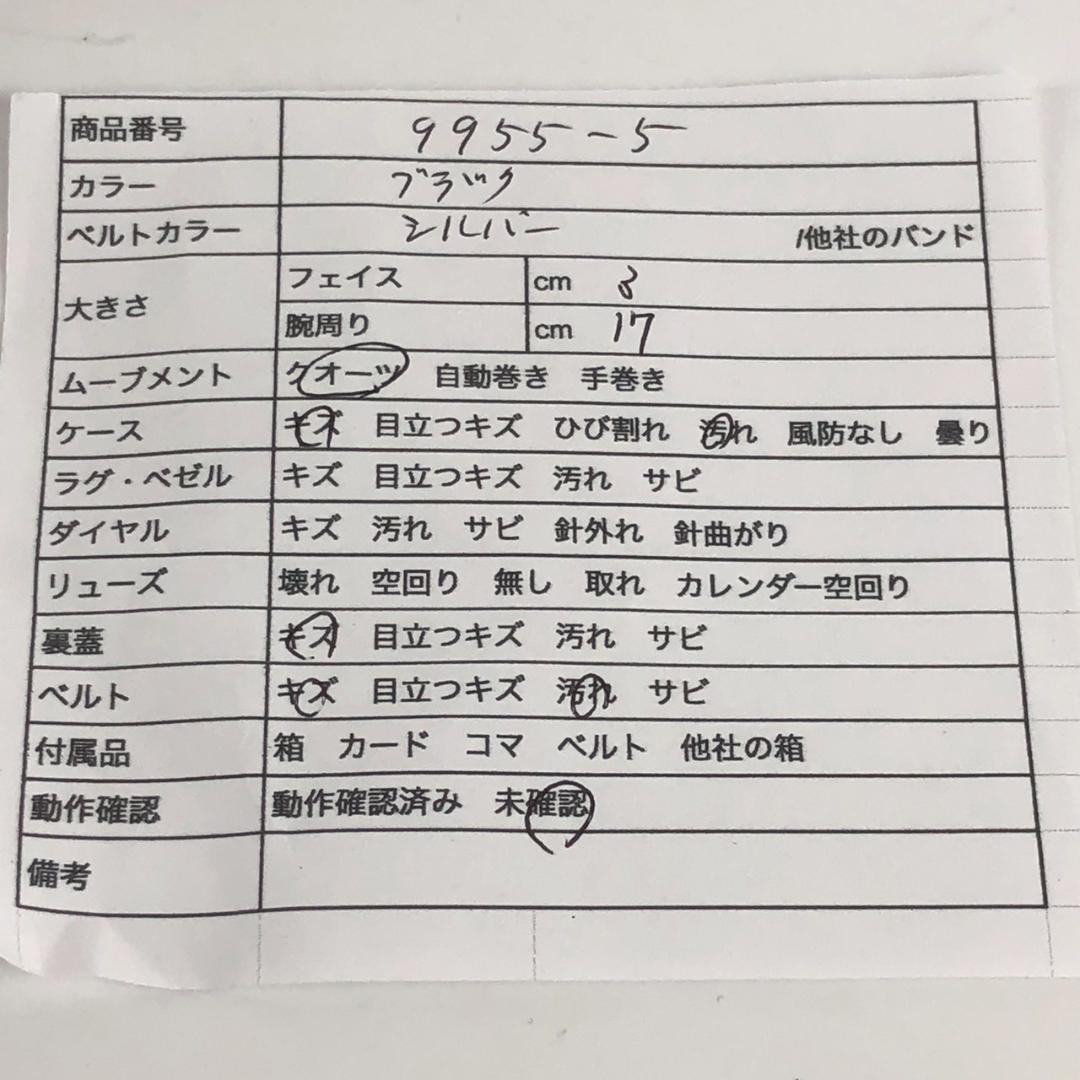 商品番号 9955-5
カラー ブラック
ベルトカラー シルバー /他社のバンド
大きさ フェイス cm 3
腕周り cm 17
ムーブメント クオーツ 自動巻き 手巻き
ケース キズ 目立つキズ ひび割れ 汚れ 風防なし 曇り
ラグ・ベゼル キズ 目立つキズ 汚れ サビ
ダイヤル キズ 汚れ サビ 針外れ 針曲がり
リューズ 壊れ 空回り 無し 取れ カレンダー空回り
裏蓋 キズ 目立つキズ 汚れ サビ
ベルト キズ 目立つキズ 汚れ サビ
付属品 箱 カード コマ ベルト 他社の箱
動作確認 動作確認済み 未確認
備考